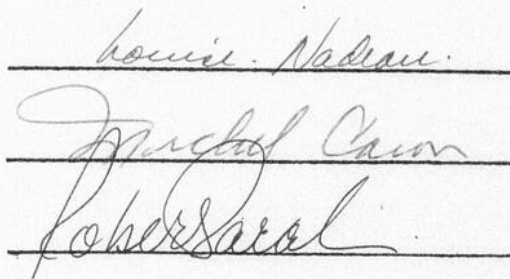 Louise. Nadeau.
Michel Caron
Robert Saral